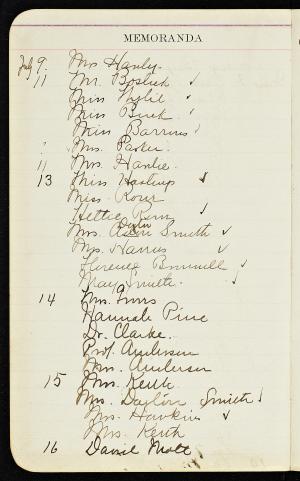 MEMORANDA
July 9. Mrs Hanly.
11 Mr. Bostick ✓
Miss Wylie ✓
Miss Buck ✓
Miss Barrus ✓
Mrs. Parker.
11 Mrs. Hanlie.
13 Miss Haslup ✓
Miss. Rour
Hettie Burn ✓
Mrs. Daylin Smith ✓
Mrs. Harris ✓
Florence Brunnell ✓
May Smith. ✓
14 Mrs. Innis
Hannah Pine
Dr. Clarke.
Prof. Anderson
Mrs. Anderson
15 Mrs. Keith.
Mrs. Daylin Smith ✓
Mrs. Hawkins ✓
Mrs. Keith
16 David Mott